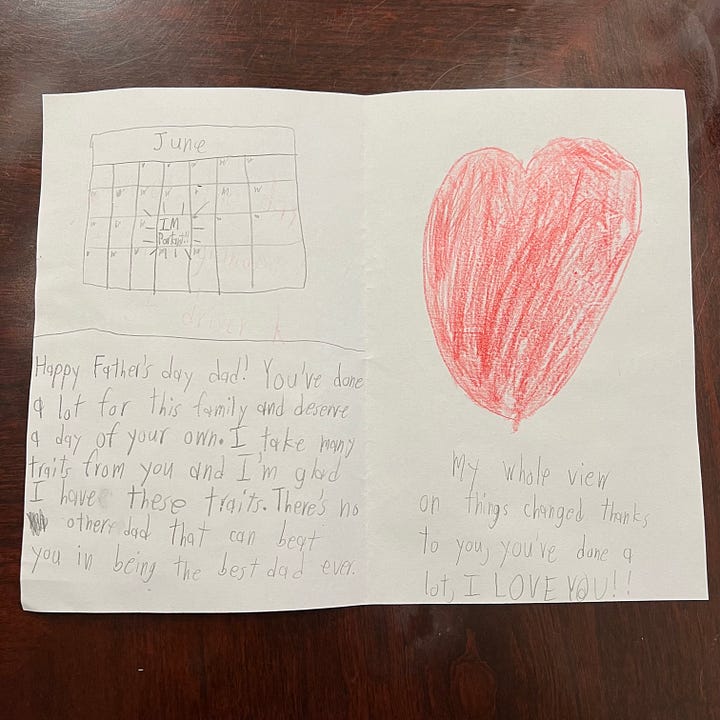 June
IM
Portant!!
Happy Father's day dad! You've done
a lot for this family and deserve
a day of your own. I take many
traits from you and I'm glad
I have these traits. There's no
other dad that can beat
you in being the best dad ever.
My whole view
on things changed thanks
to you, you've done a
lot, I LOVE YOU!!